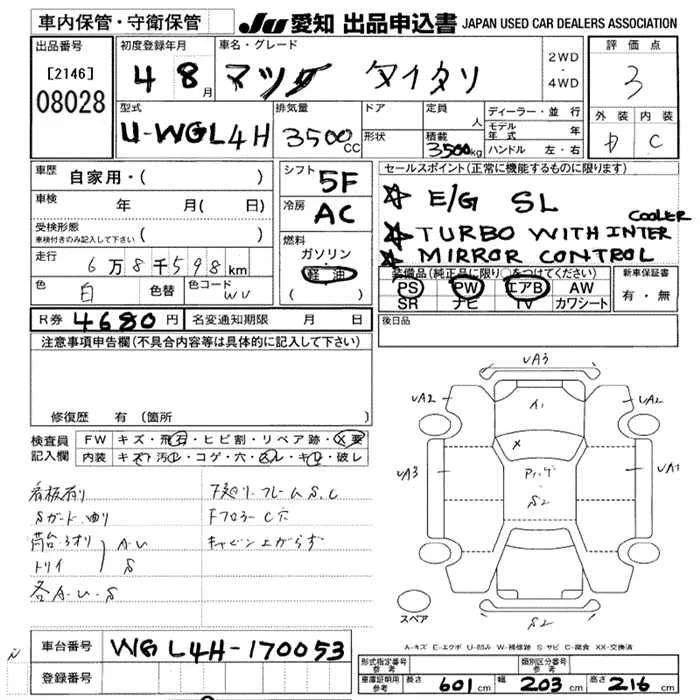 車内保管・守衛保管
JU 愛知 出品申込書 JAPAN USED CAR DEALERS ASSOCIATION
出品番号
[2146]
08028
初度登録年月
4 8月
車名・グレード
マツダ タイタン
2WD
・
4WD
評価点
3
外装 内装
D C
型式
U-WGL4H
排気量
3500CC
ドア
形状
定員
人
積載
3500kg
ディーラー・並行
モデル年式 年
ハンドル 左・右
車歴
自家用・( )
車検 年 月( 日)
受検形態
車検付きのみ記入して下さい ( )
走行
6万8千598km
色 白 色替 色コード WV
シフト 5F
冷房 AC
燃料
ガソリン・
軽油
( )
セールスポイント(正常に機能するものに限ります)
☆ E/G SL
☆ TURBO WITH INTER COOLER
☆ MIRROR CONTROL
装備品(純正品に限り○をつけてください)
PS PW エアB AW
SR ナビ TV カワシート
新車保証書
有・無
R券 4680円 名変通知期限 月 日
後日品
注意事項申告欄(不具合内容等は具体的に記入して下さい)
修復歴 有(箇所 )
検査員記入欄
FW キズ・飛石・ヒビ割・リペア跡・X要
内装 キズ・汚レ・コゲ・穴・スレ・キレ・破レ
看板有り
Sガード
荷台
A.U
S
各A.U.S
下廻り.フレームS.C
C穴
キャビン上がらず
VA3
VA2
A1
VA2
X
VA3
S2
VA1
S2
スペア
A-キズ E-エクボ U-凹み W-補修跡 S-サビ C-腐食 XX-交換済
車台番号 WGL4H-170053
登録番号
形式指定番号
参考
類別区分番号
参考
車庫証明用
参考
長さ 601cm 幅 203cm 高さ 216cm